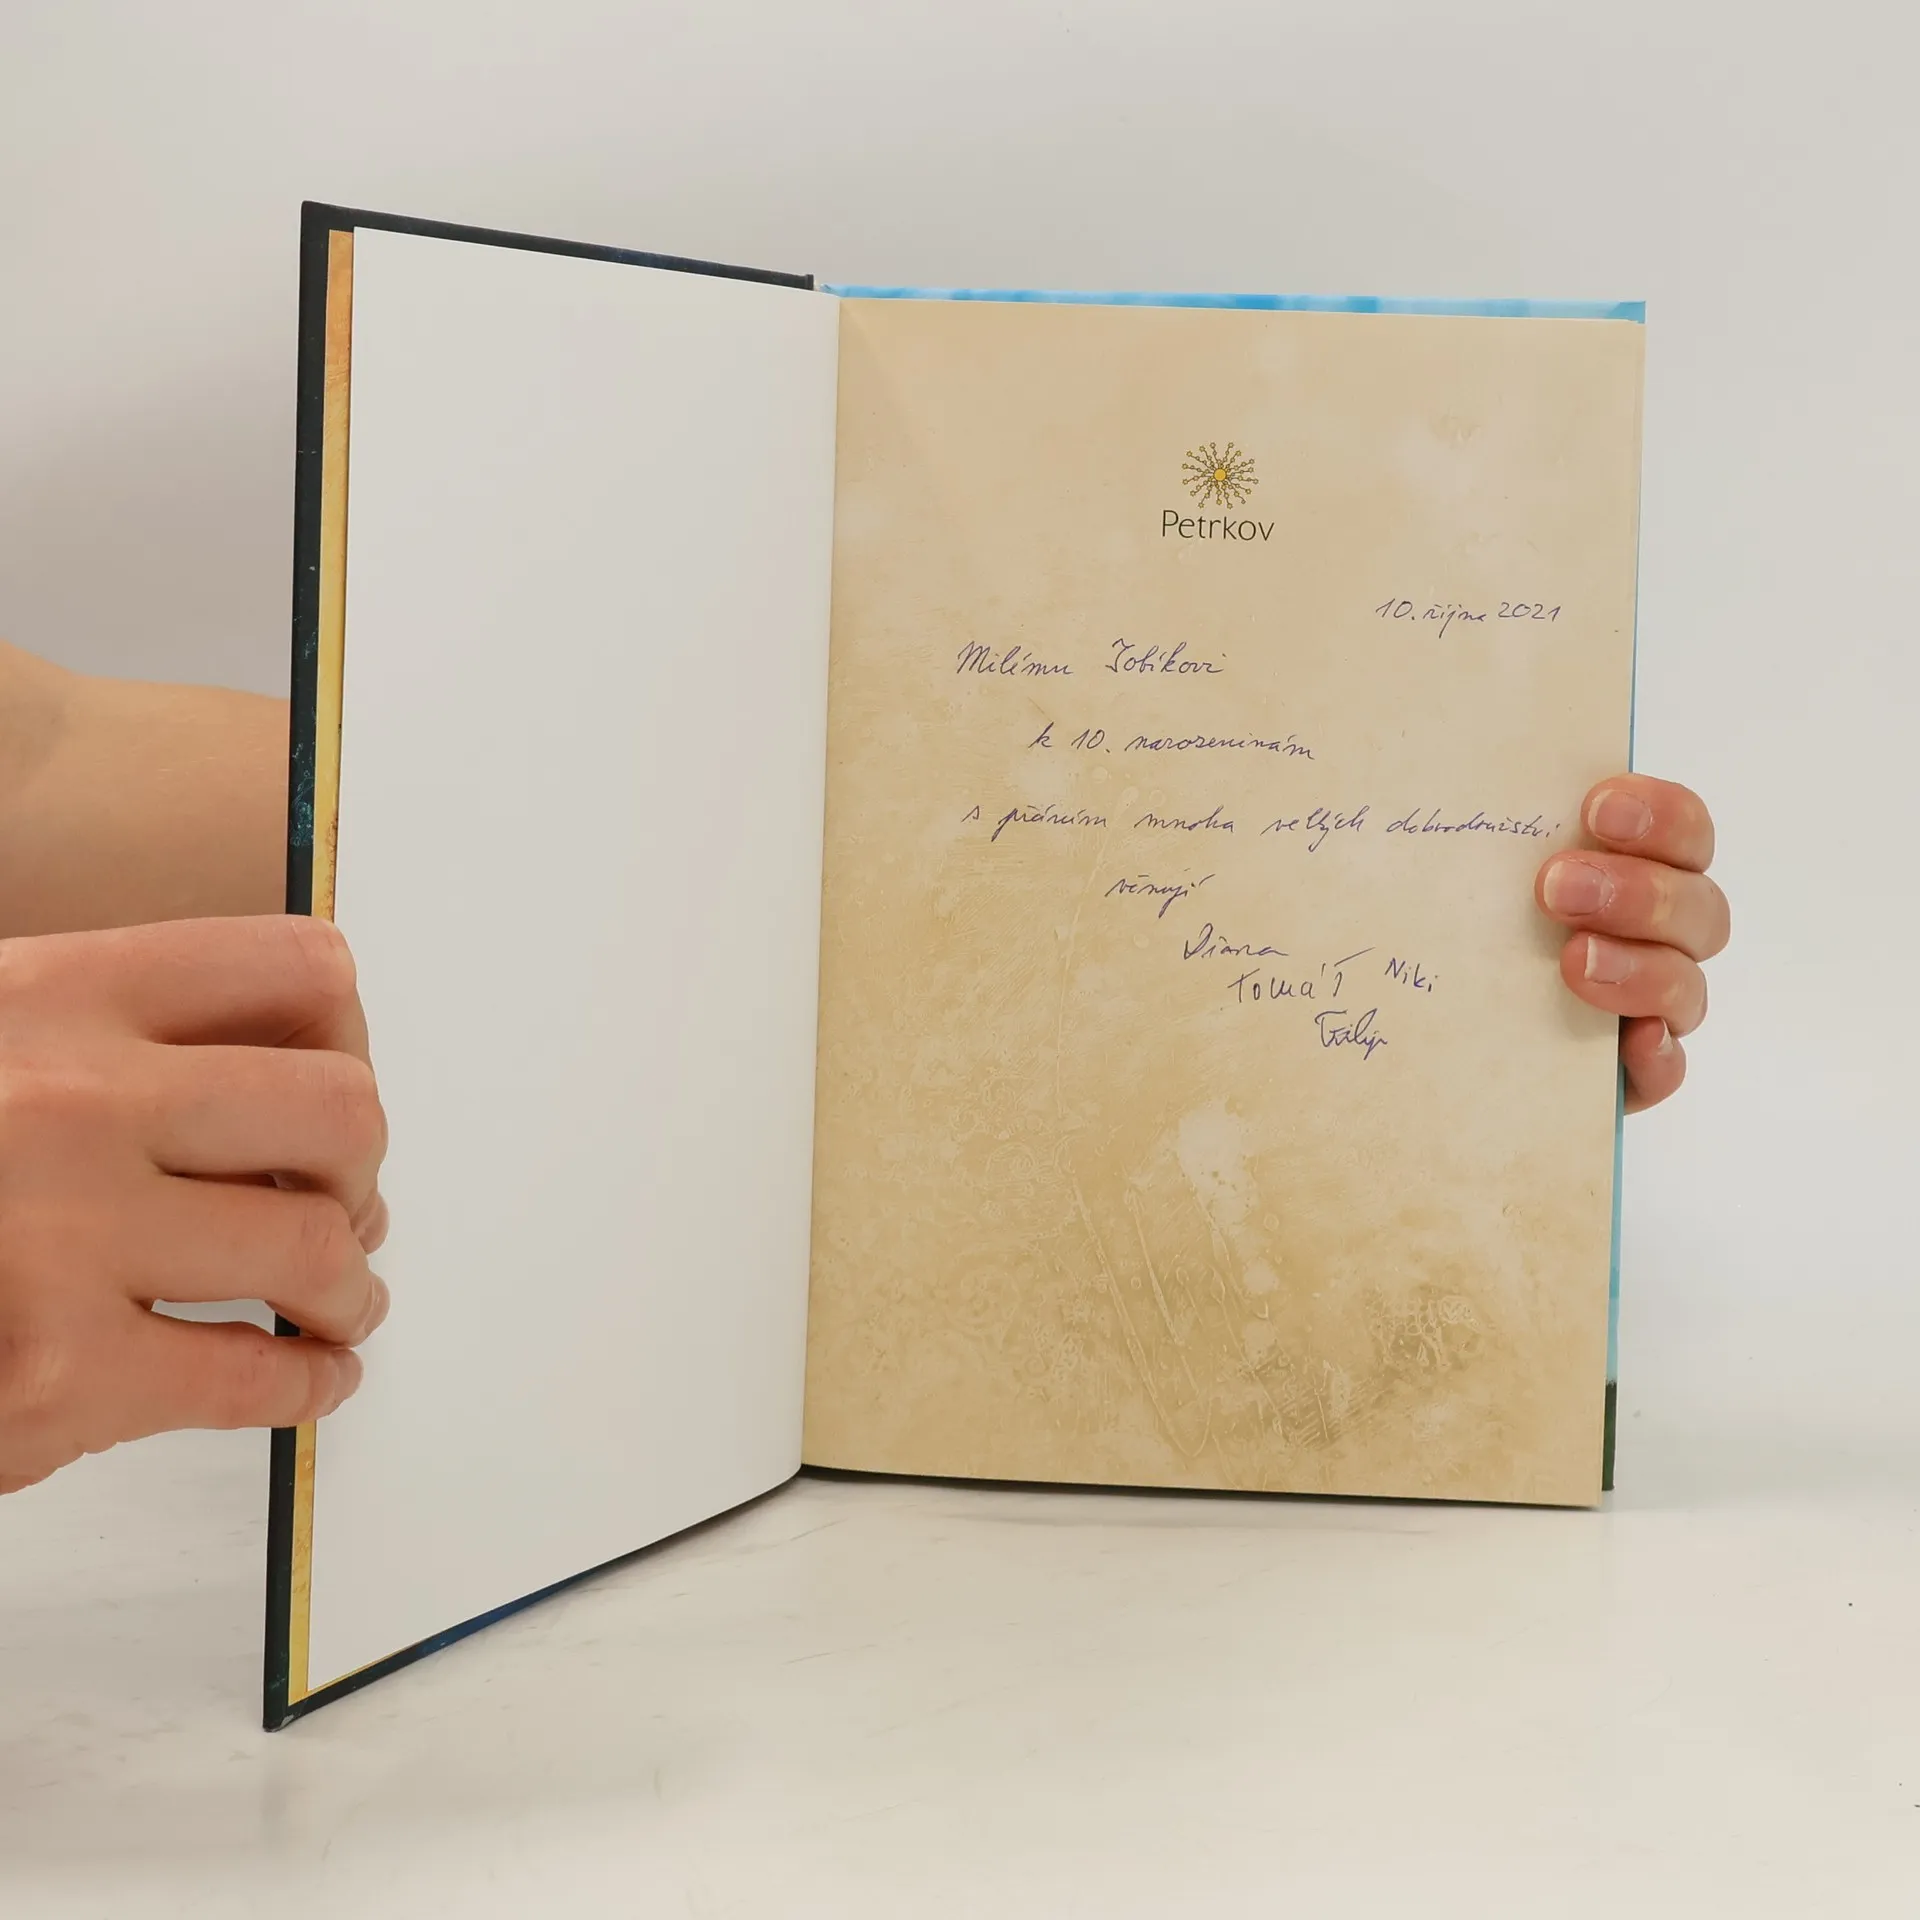 Petrkov
10. října 2021
Milému Tobíkovi
k 10. narozeninám
s přáním mnoha velkých dobrodružství
věnují
Diana
Tomáš Niki
Filip